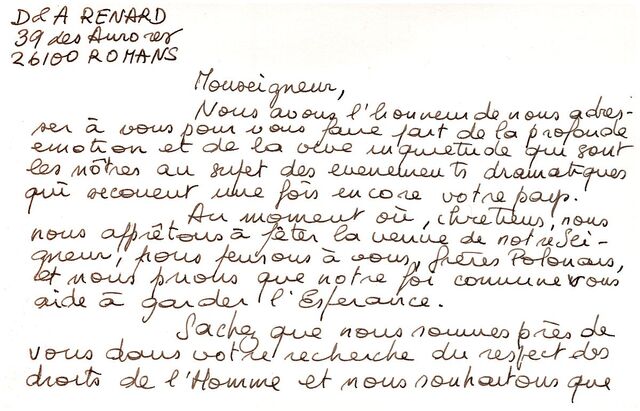 D & A RENARD
39 des Aurores
26100 ROMANS
Monseigneur,
Nous avons l'honneur de nous adres-
ser à vous pour vous faire part de la profonde
emotion et de la vive inquietude qui sont
les nôtres au sujet des evenements dramatiques
qui secouent une fois encore votre pays.
Au moment où, chrétiens, nous
nous apprêtons à fêter la venue de notre Sei-
gneur, nous pensons à vous, frères Polonais,
et nous prions que notre foi commune vous
aide à garder l'Esperance.
Sachez que nous sommes près de
vous dans votre recherche du respect des
droits de l'Homme et nous souhaitons que